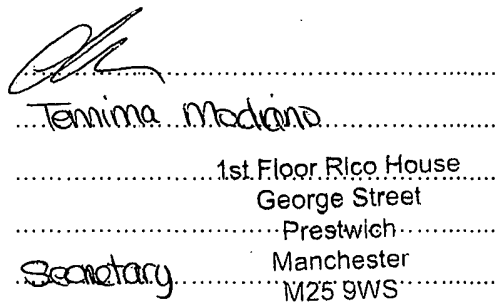 Temima Modiano
1st Floor Rico House
George Street
Prestwich
Manchester
Secretary
M25 9WS